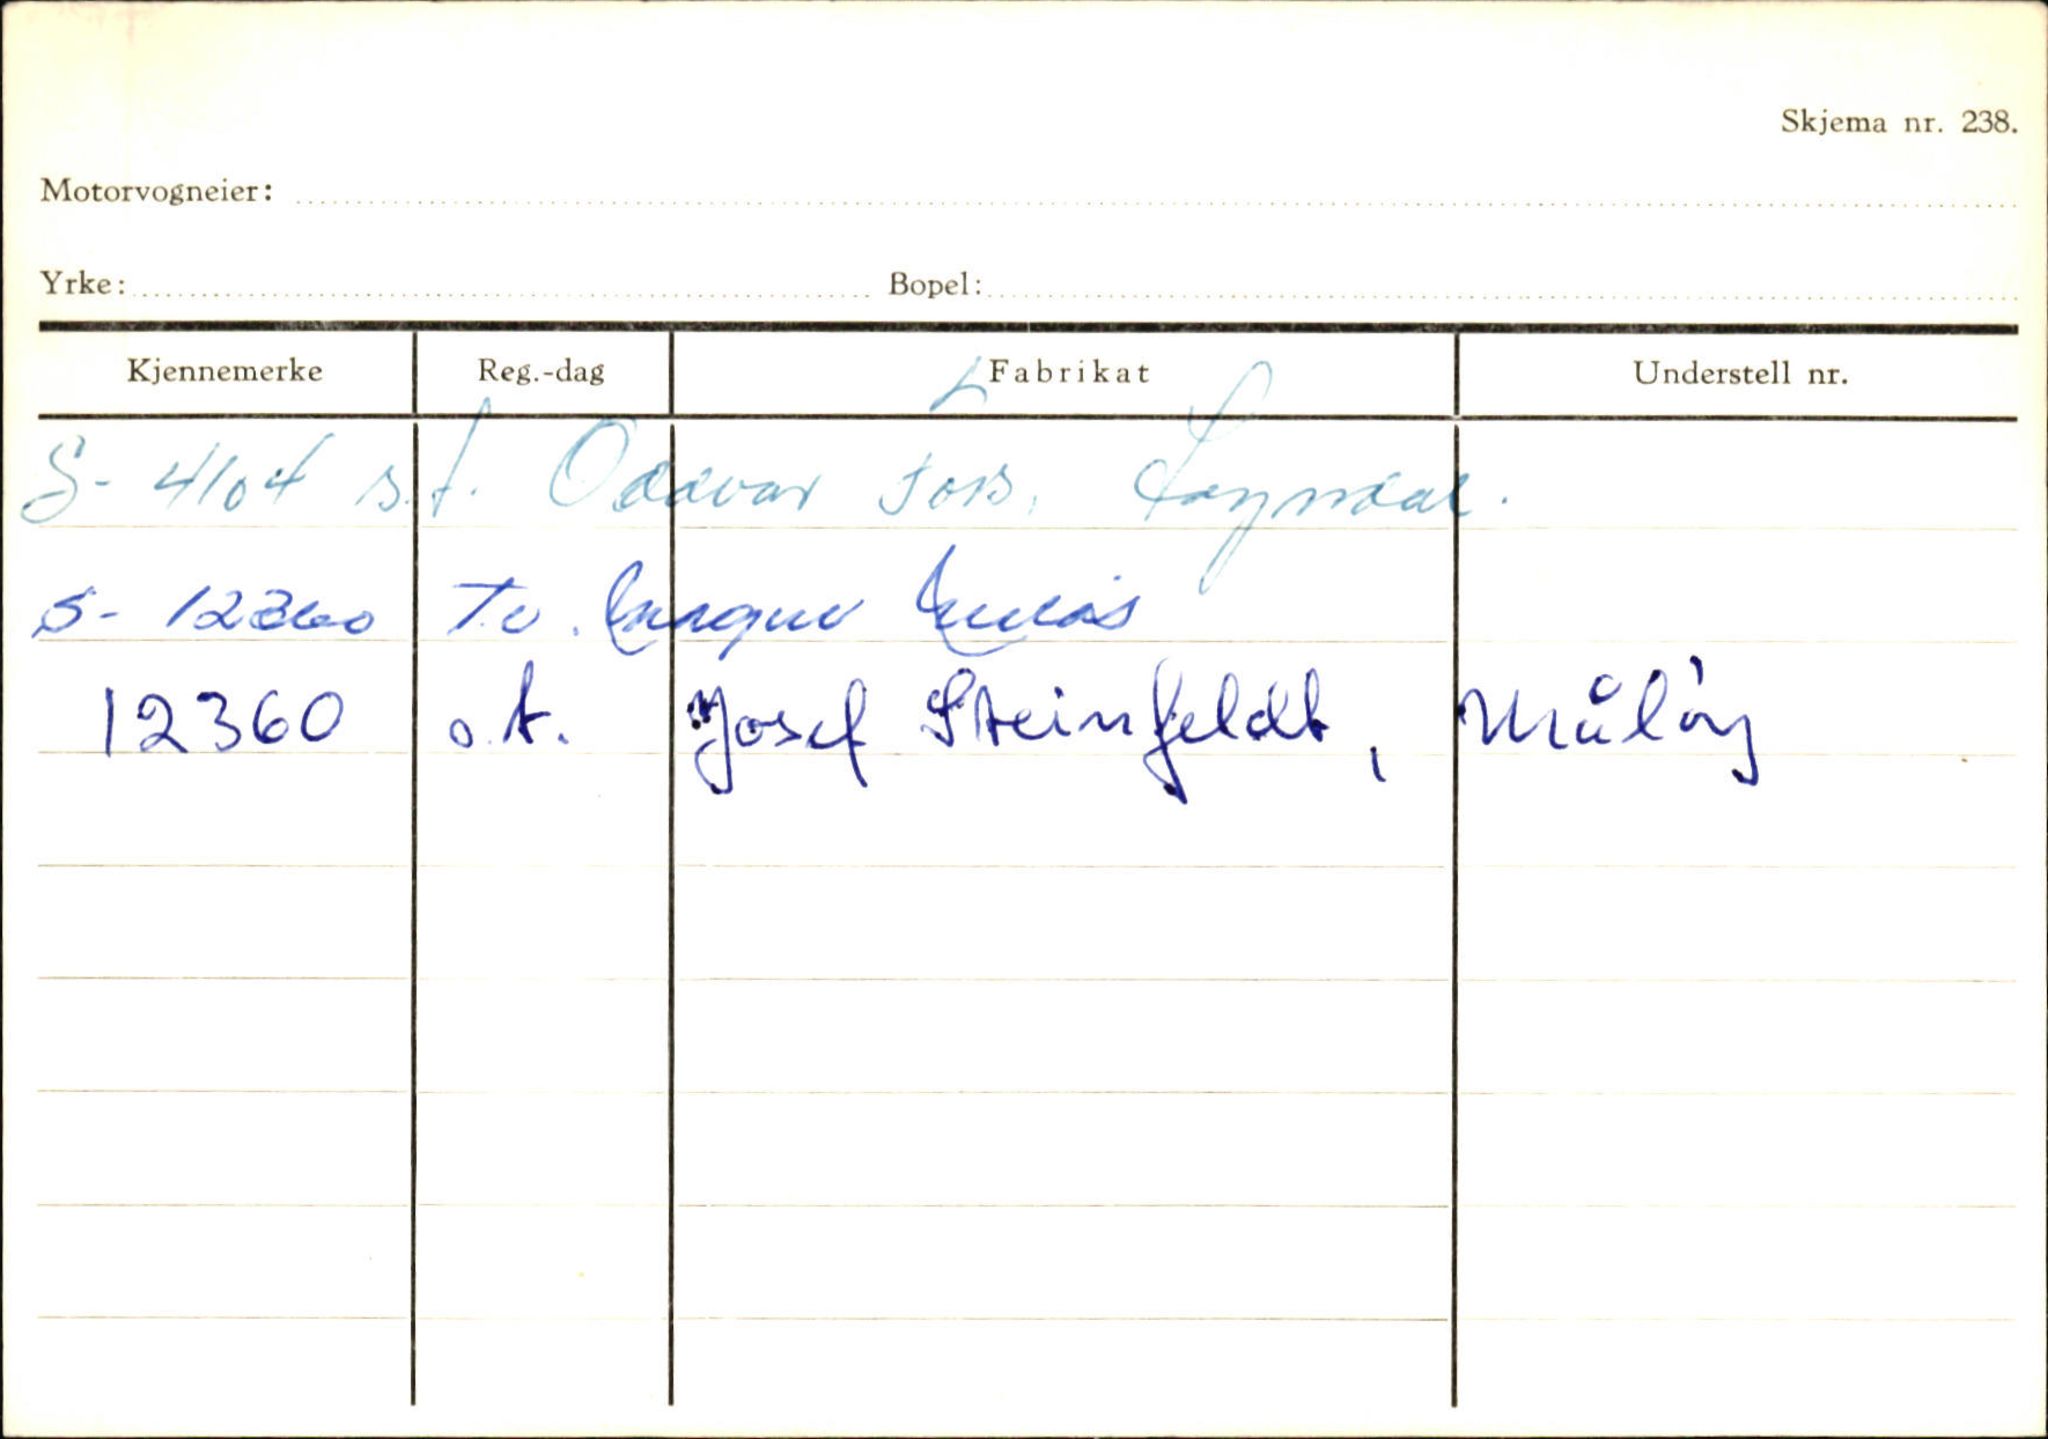 Skjema nr. 238.
Motorvogneier:
Yrke: Bopel:
Kjennemerke Reg.-dag Fabrikat Understell nr.
S- 4104 s.t. Oddvar Tors.
S- 12360
12360 o.t. Josef Steinfeldt, Måløy